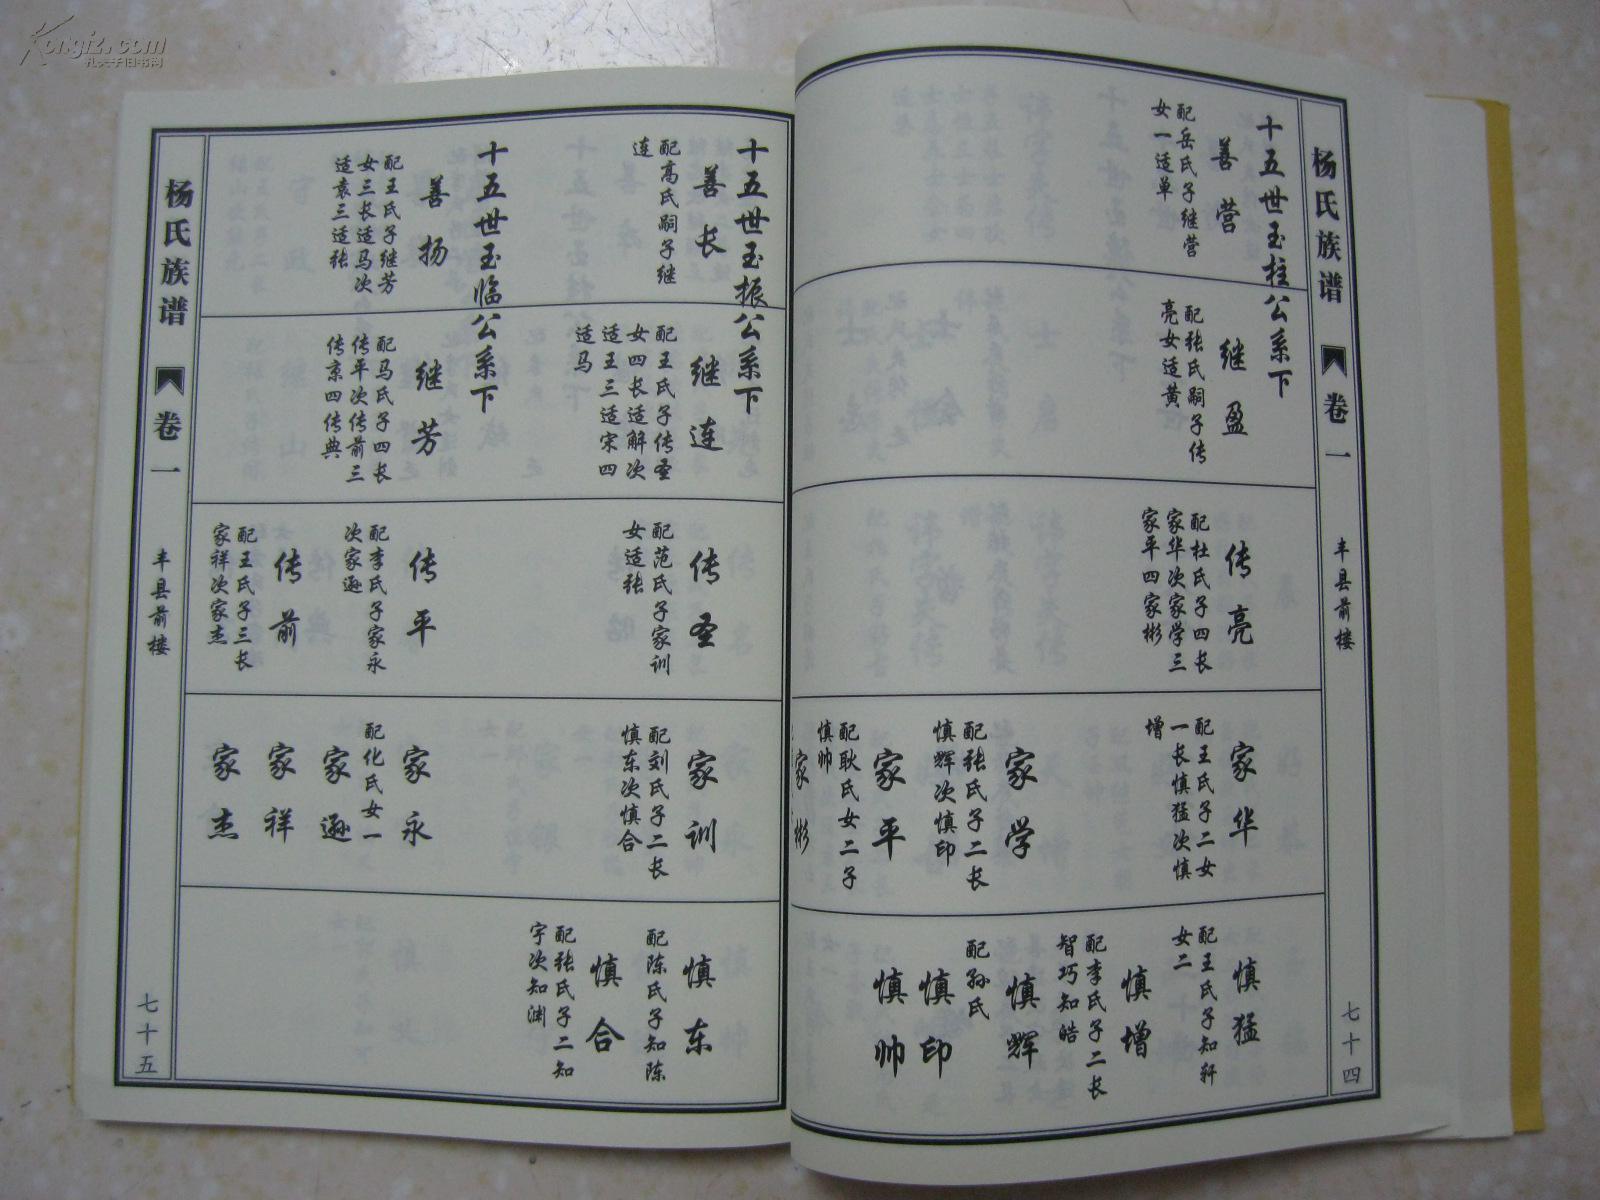 Kongfz.com
孔夫子旧书网
杨氏族谱
卷一
丰县前楼
七十四
十五世玉柱公系下
善营
配岳氏子继营
女一适单
继盈
配张氏嗣子传
亮女适黄
传亮
配杜氏子四长
家华次家学三
家平四家彬
家华
配王氏子二女
一长慎猛次慎
增
家学
配张氏子二长
慎辉次慎印
家平
配耿氏女二子
慎帅
家彬
慎猛
配王氏子知轩
女二
慎增
配李氏子二长
智巧知皓
慎辉
配孙氏
慎印
慎帅
十五世玉振公系下
善长
配高氏嗣子继
连
继连
配王氏子传圣
女四长适解次
适王三适宋四
适马
传圣
配范氏子家训
女适张
家训
配刘氏子二长
慎东次慎合
慎东
配陈氏子知陈
慎合
配张氏子二知
宇次知渊
十五世玉临公系下
善扬
配王氏子继芳
女三长适马次
适袁三适张
继芳
配马氏子四长
传平次传前三
传京四传典
传平
配李氏子家永
次家逊
传前
配王氏子三长
家祥次家杰
家永
配化氏女一
家逊
家祥
家杰
杨氏族谱
卷一
丰县前楼
七十五